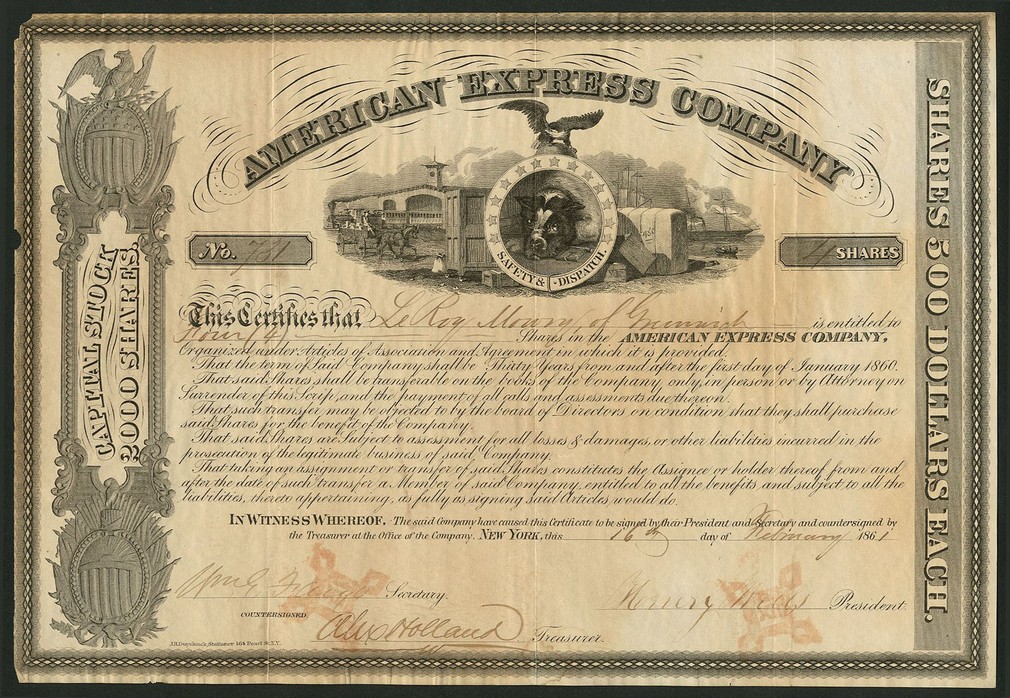 AMERICAN EXPRESS COMPANY
SAFETY & DISPATCH.
No. 731
4 SHARES
CAPITAL STOCK
2000 SHARES
SHARES 500 DOLLARS EACH.
This Certifies that Le Roy Mowry, of Greenwich is entitled to
Four (4) Shares in the AMERICAN EXPRESS COMPANY,
Organized under Articles of Association and Agreement in which it is provided.
That the term of Said Company shall be Thirty Years from and after the first day of January 1860.
That said Shares shall be transferable on the books of the Company only, in person or by Attorney on
Surrender of this Scrip, and the payment of all calls and assessments due thereon.
That such transfer may be objected to by the board of Directors on condition that they shall purchase
said Shares for the benefit of the Company.
That said Shares are Subject to assessment for all losses & damages, or other liabilities incurred in the
prosecution of the legitimate business of said Company.
That taking an assignment or transfer of said Shares constitutes the Assignee or holder thereof from and,
after the date of such transfer a Member of said Company, entitled to all the benefits and subject to all the
liabilities, thereto appertaining, as fully as signing said Articles would do.
IN WITNESS WHEREOF, The said Company have caused this Certificate to be signed by their President and Secretary and countersigned by
the Treasurer at the Office of the Company. NEW YORK, this 16th day of February 1861
Wm G Fargo Secretary.
Henry Wells President.
COUNTERSIGNED.
Alex Holland Treasurer.
Stationer 164 Pearl St. N.Y.